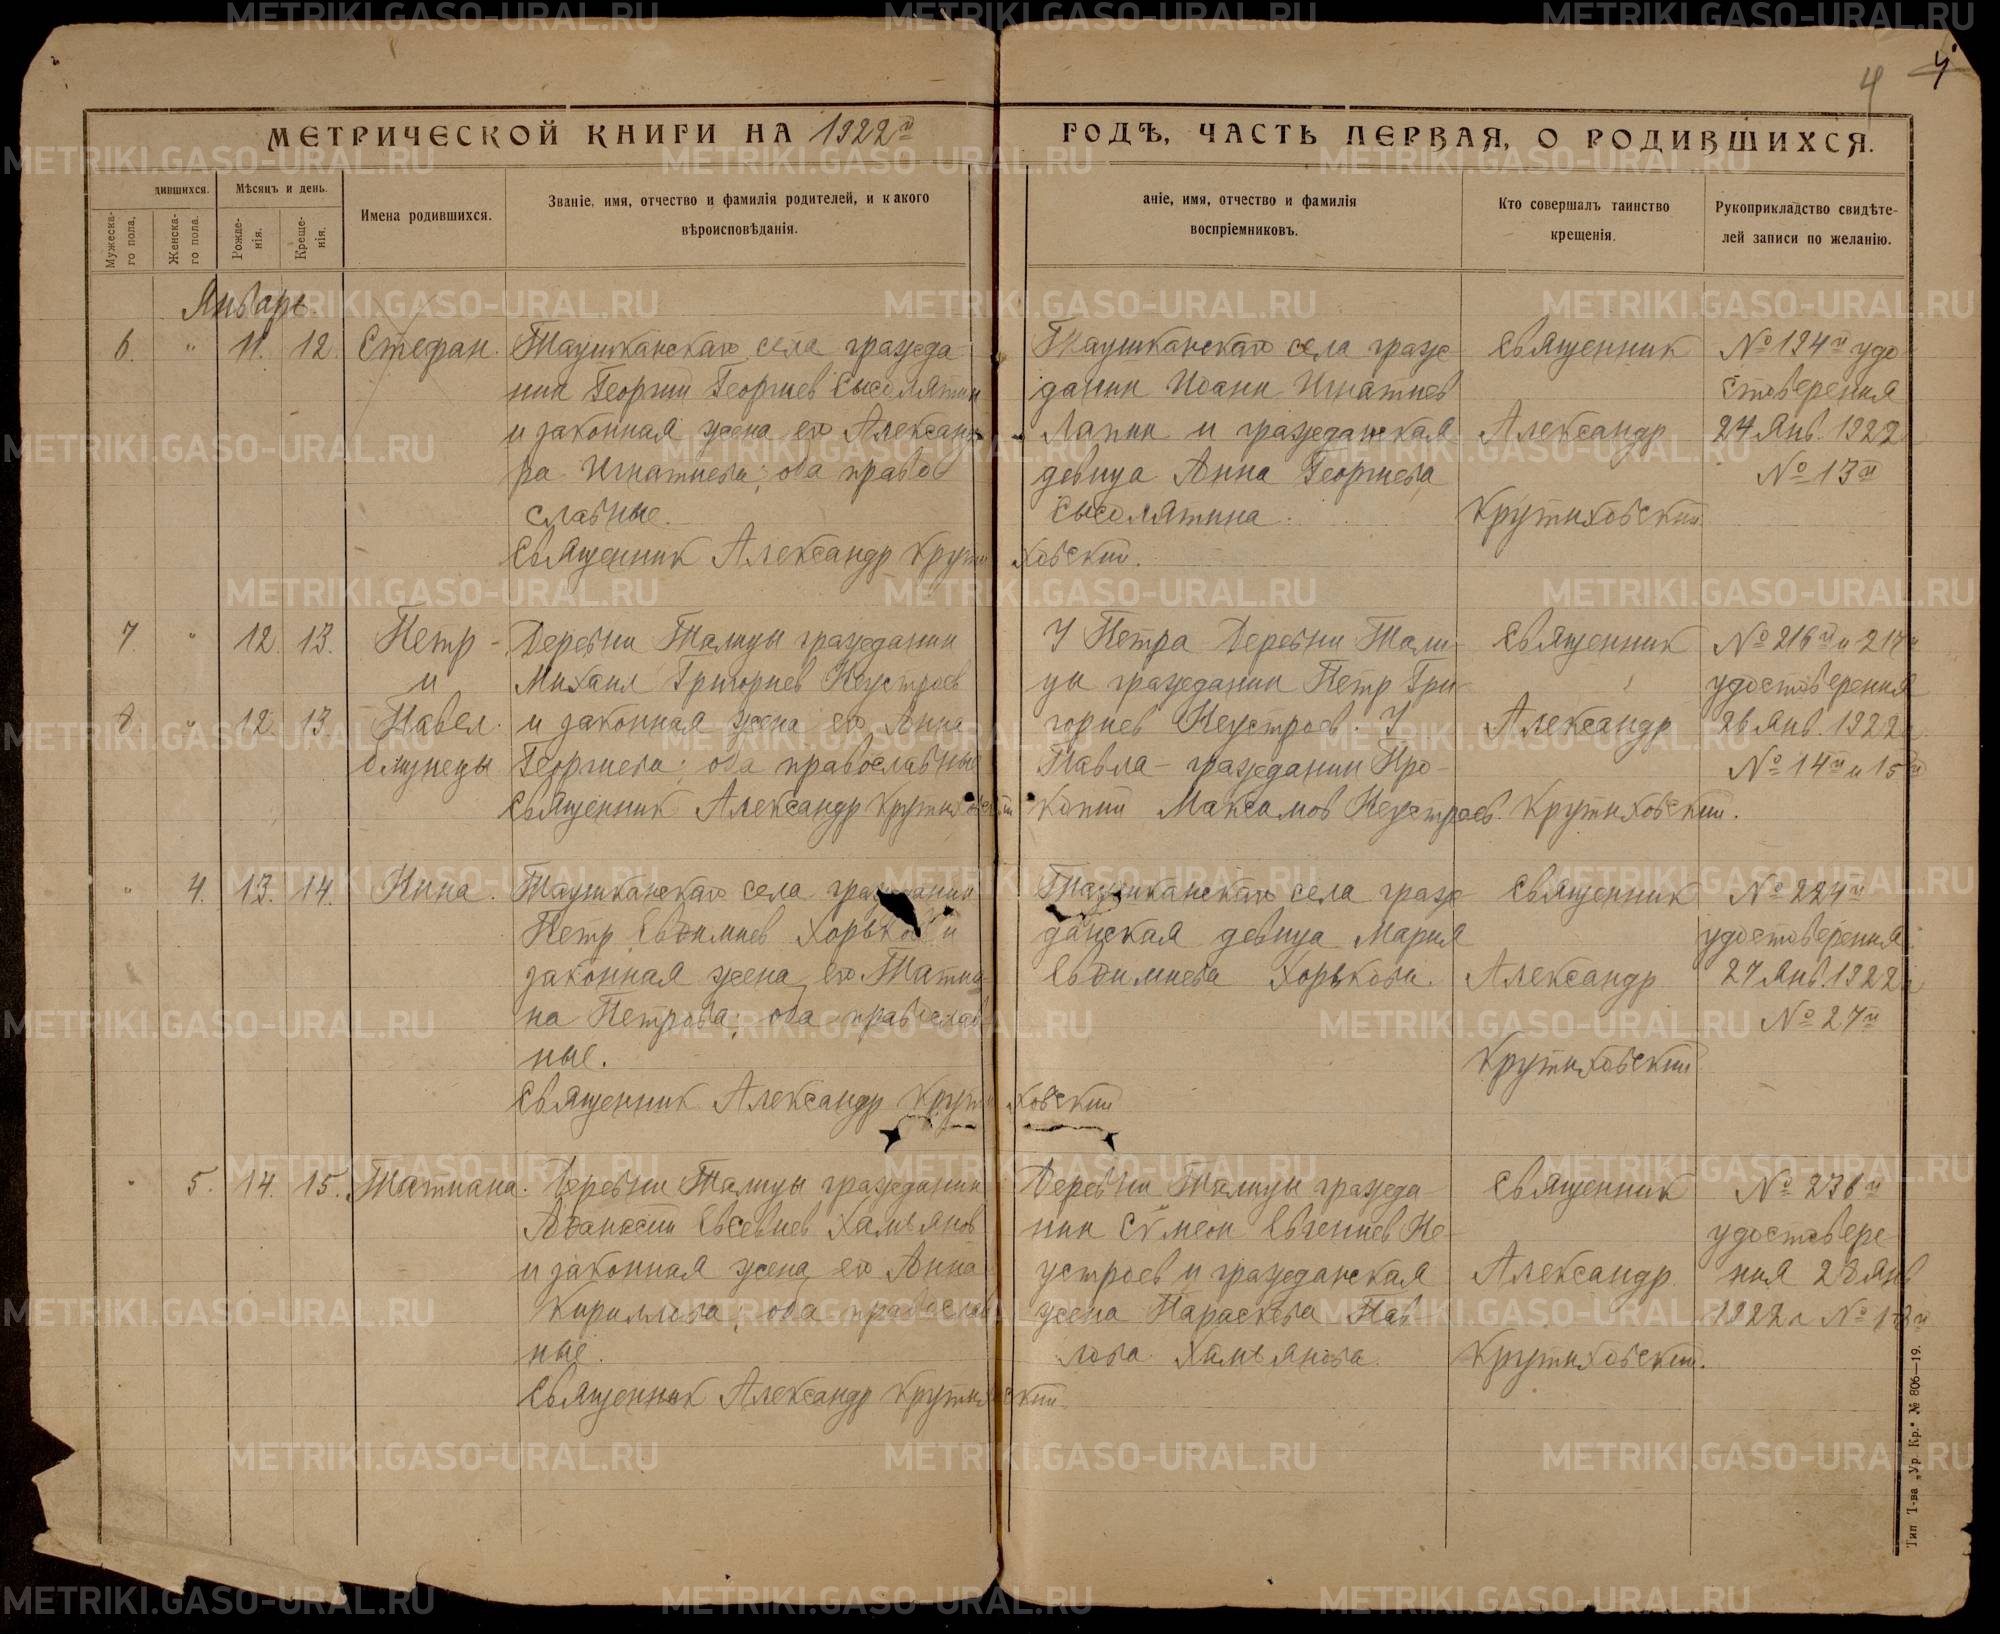 4 4
МЕТРИЧЕСКОЙ КНИГИ НА 1922й ГОДЪ, ЧАСТЬ ПЕРВАЯ, О РОДИВШИХСЯ.
дившихся.
Мужеска-
го пола.
Женска-
го пола.
Мѣсяцъ и день.
Рожде-
нія.
Креще-
нія.
Имена родившихся.
Званіе, имя, отчество и фамилія родителей, и какого
вѣроисповѣданія.
аніе, имя, отчество и фамилія
воспріемниковъ.
Кто совершалъ таинство
крещенія.
Рукоприкладство свидѣте-
лей записи по желанію.
Январь.
6. " 11. 12. Стефан.
Таушканскаго села гражда
нин Георгий Георгиев Сысолятин
и законная жена его Александ
ра Игнатиева; оба право
славные.
Священник Александр Крутиховский.
Таушканскаго села граж
данин Иоанн Игнатиев
Лапин и гражданская
девица Анна Георгиева
Сысолятина.
Священник
Александр
Крутиховский
№ 194й удо
стоверения
24 Янв. 1922
№ 13й
7. " 12. 13. Петр -
и
8. " 12. 13. Павел.
близнецы
Деревни Талицы гражданин
Михаил Григориев Неустроев
и законная жена его Анна
Георгиева; оба православные
Священник Александр Крутиховский
У Петра Деревни Тали-
цы гражданин Петр Гри-
гориев Неустроев. У
Павла - гражданин Про-
копий Максимов Неустроев.
Священник
Александр
Крутиховский.
№ 216й и 217й
удостоверения
26 Янв. 1922г
№ 14й и 15й
" 4. 13. 14. Нина.
Таушканскаго села гражданин
Петр Евдимиев Хорьков и
законная жена его Татиа
на Петрова; оба православ
ные.
Священник Александр Крутиховский
Таушканскаго села граж
данская девица Мария
Евдимиева Хорькова.
Священник
Александр
Крутиховский
№ 224й
удостоверения
27 Янв. 1922г
№ 27й
" 5. 14. 15. Татиана.
Деревни Талицы гражданин
Афанасий Евсевиев Хамьянов
и законная жена его Анна
Кириллова; оба православ
ные.
Священник Александр Крутиховский
Деревни Талицы гражда-
нин Сѵмеон Евгениев Не-
устроев и гражданская
жена Параскева Пав
лова Хамьянова.
Священник
Александр
Крутиховский.
№ 236й
удостовере-
ния 28 Янв
1922г
Тип. Т-ва „Ур. Кр." № 806—19.
METRIKI.GASO-URAL.RU